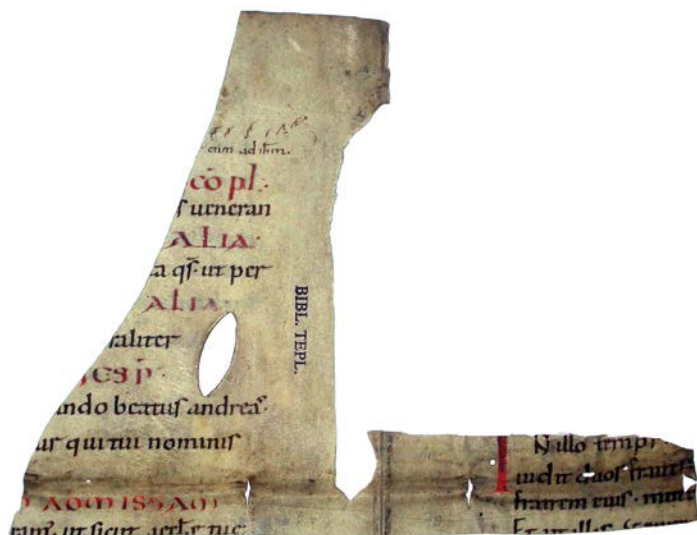 cum ad ihm.
cō pl:
s ueneran
ALIA·
ta qs̄· ut per
ALIA·
raliter
ndo beatus andreas·
us qui tui nominis
AD MISSAM
ut sicut aecl̄e tue
BIBL. TEPL.
IN illo temp
uidit duos fratres
fratrem eius·